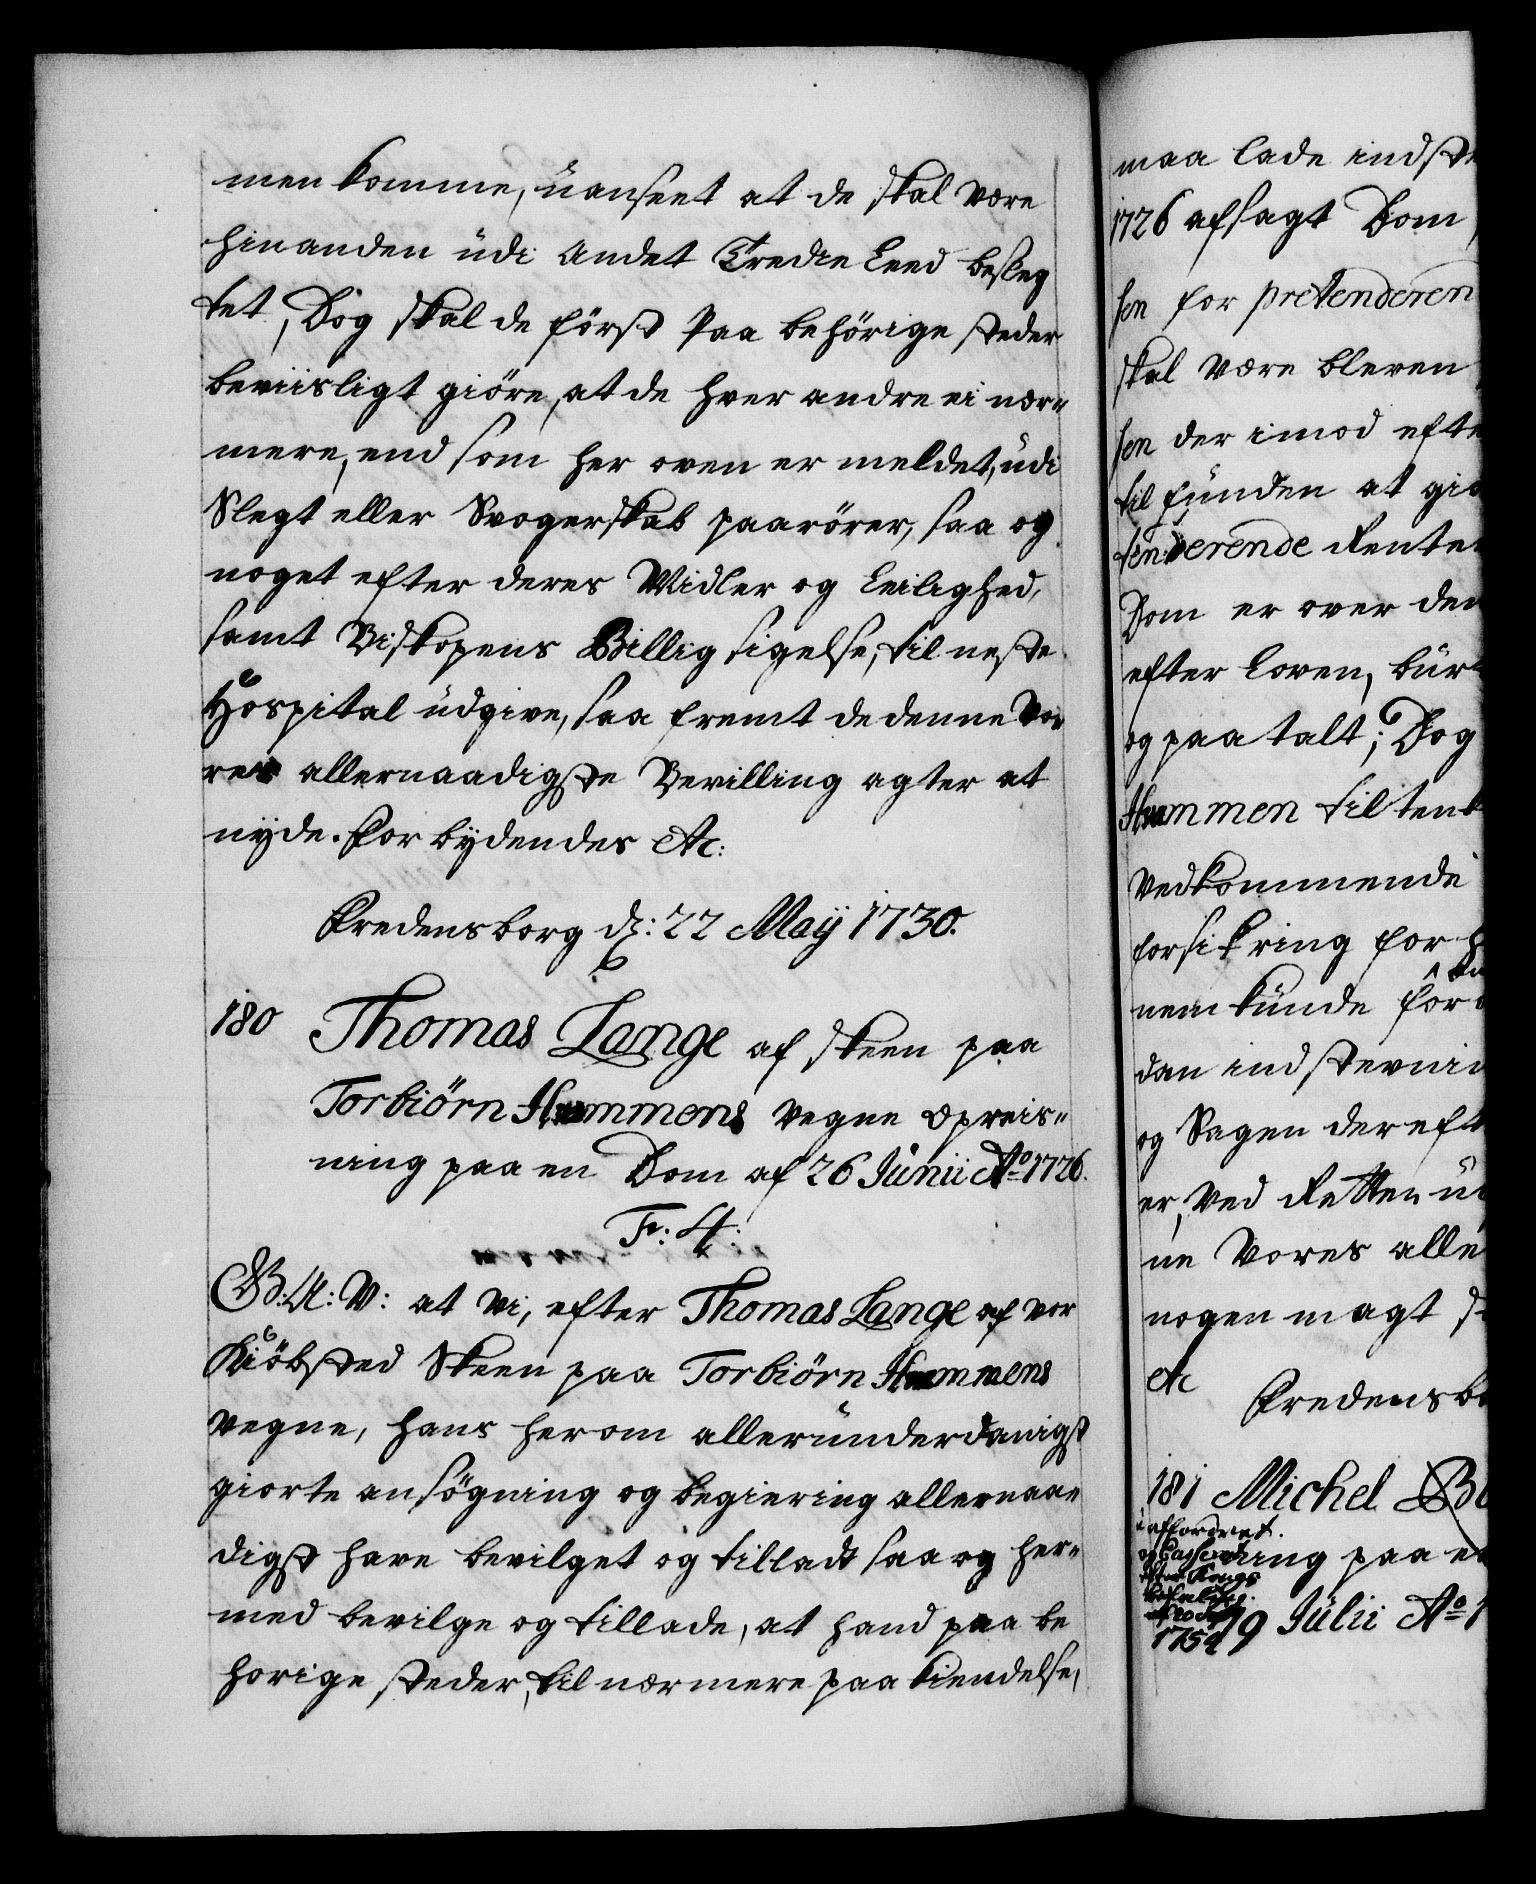 men komme, uanseet at de skal være
hinanden udi Andet Tredie Leed besleg
tet, Dog skal de först paa behörige steder
beviisligt giöre, at de hver andre ei nær-
mere, end som her oven er meldet, udi
Slegt eller Svogerskab paarörer, saa og
noget efter deres Midler og Leilighed,
samt Biskopens Billigsigelse, til neste
Hospital udgive, saa fremt de denne Vo-
res allernaadigste Bevilling agter at
nyde. Forbydendes etc:
Fredensborg d: 22 Maij 1730.
180 Thomas Lange af Skeen paa
Torbiörn Hummens vegne opreis-
ning paa en Dom af 26 Junii Ao 1726.
F: 4:
G: A: V: at Vi, efter Thomas Lange af vor
Kiöbsted Skeen paa Torbiörn Hummens
vegne, hans herom allerunderdanigst
giorte ansögning og begiering allernaa-
digst have bevilget og tilladt saa og her-
med bevilge og tillade, at hand paa be
horige steder, til nærmere paakiendelse,
maa lade indste
1726 afsagt Dom
sen for prætenderen
skal være bleven
sen der imod efte
til funden at gio
tenderende Rente
Dom er over den
efter Loven, bur
og paa talt; Dog
Hummen til tenk
Vedkommende
forsikring for h
nem kunde for
dan indstevnin
og Sagen dereft
er, ved Retten u
ne Vores alle
nogen magt s
etc
Fredensb
181 Michel B
uaffordret.
og Casseret
efter Kongl
befaling
af 20 Sep
1754
ning paa e
19 Julii Ao 1